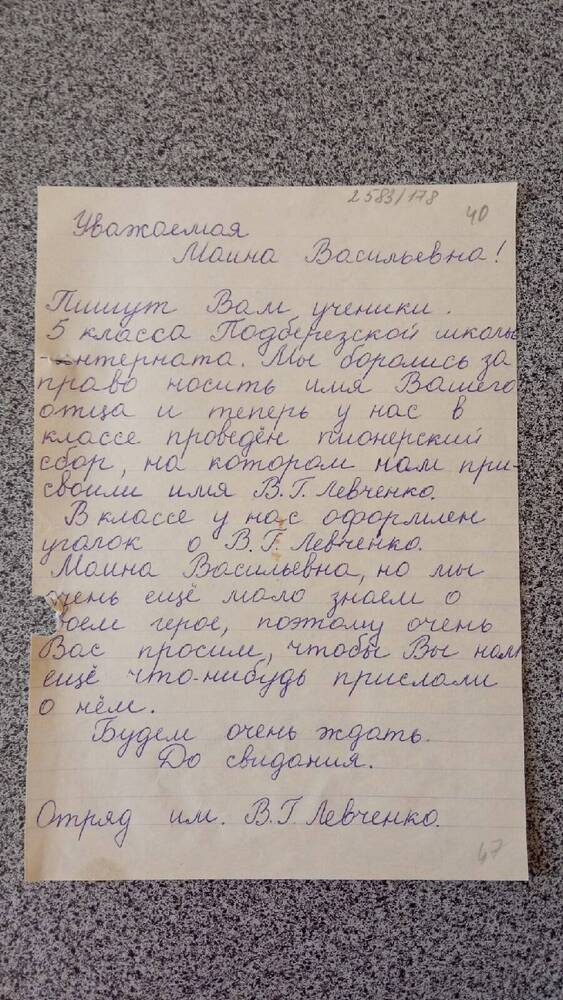 2583/178
40
Уважаемая
Маина Васильевна!
Пишут Вам ученики.
5 класса Подберезской школы
-интерната. Мы боролись за
право носить имя Вашего
отца и теперь у нас в
классе проведён пионерский
сбор, на котором нам при-
своили имя В.Г. Левченко.
В классе у нас оформлен
уголок о В.Г. Левченко.
Маина Васильевна, но мы
очень ещё мало знаем о
воем герое, поэтому очень
Вас просим, чтобы Вы нам
ещё что-нибудь прислали
о нём.
Будем очень ждать.
До свидания.
Отряд им. В.Г. Левченко.
47